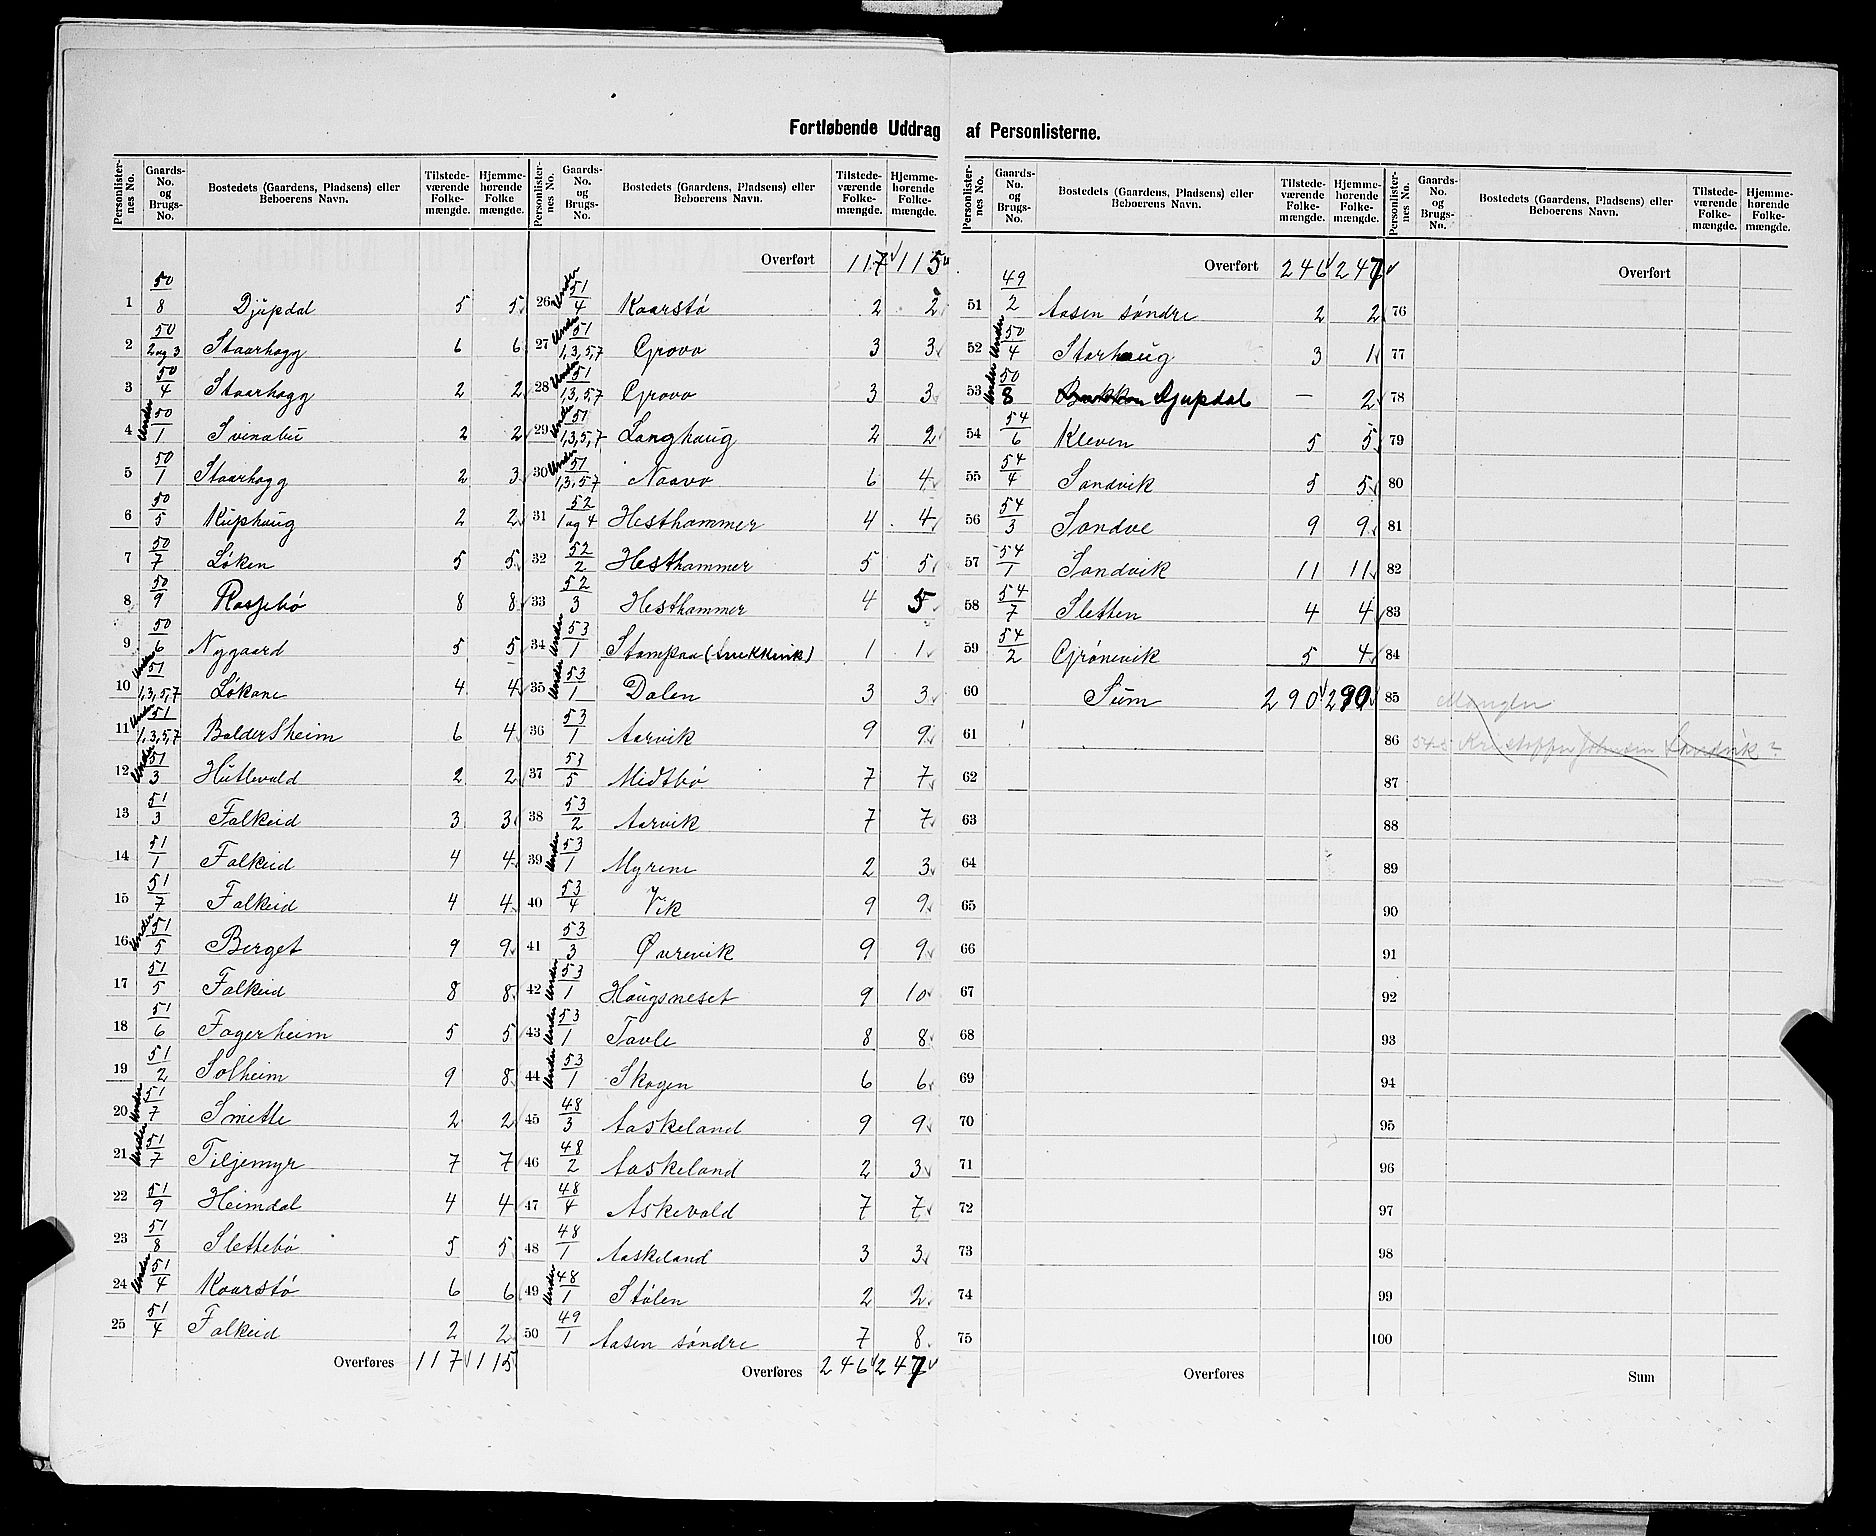 Fortløbende Uddrag af Personlisterne.
Personlister-nes No. | Gaards-No. og Brugs-No. | Bostedets (Gaardens, Pladsens) eller Beboerens Navn. | Tilstede-værende Folke-mængde. | Hjemme-hørende Folke mængde.
1 | 50/8 | Djupdal | 5 | 5
2 | 50/2 og 3 | Staarhagg | 6 | 6
3 | 50/4 | Staarhagg | 2 | 2
4 | Under 50/1 | Svinabu | 2 | 2
5 | 50/1 | Staarhagg | 2 | 3
6 | 50/5 | Kuphaug | 2 | 2
7 | 50/7 | Løken | 5 | 5
8 | 50/9 | Rossebø | 8 | 8
9 | 50/6 | Nygaard | 5 | 5
10 | Under 51/1,3,5,7 | Løkane | 4 | 4
11 | Under 51/1,3,5,7 | Baldersheim | 6 | 4
12 | Under 51/3 | Hutlevald | 2 | 2
13 | 51/3 | Falkeid | 3 | 3
14 | 51/1 | Falkeid | 4 | 4
15 | 51/7 | Falkeid | 4 | 4
16 | Under 51/5 | Berget | 9 | 9
17 | 51/5 | Falkeid | 8 | 8
18 | 51/6 | Fagerheim | 5 | 5
19 | 51/2 | Solheim | 9 | 8
20 | Under 51/7 | Smette | 2 | 2
21 | Under 51/7 | Tiljemyr | 7 | 7
22 | 51/9 | Heimdal | 4 | 4
23 | 51/8 | Slettebø | 5 | 5
24 | Under 51/4 | Kaarstø | 6 | 6
25 | 51/4 | Falkeid | 2 | 2
Overføres | 117 | 115
Personlister-nes No. | Gaards-No. og Brugs-No. | Bostedets (Gaardens, Pladsens) eller Beboerens Navn. | Tilstede-værende Folke-mængde. | Hjemme-hørende Folke-mængde.
Overført | 117 | 115
26 | Under 51/4 | Kaarstø | 2 | 2
27 | Under 51/1,3,5,7 | Grovo | 3 | 3
28 | Under 51/1,3,5,7 | Grovo | 3 | 3
29 | Under 51/1,3,5,7 | Langhaug | 2 | 2
30 | Under 51/1,3,5,7 | Naavo | 6 | 4
31 | 52/1 og 4 | Hesthammer | 4 | 4
32 | 52/2 | Hesthammer | 5 | 5
33 | 52/3 | Hesthammer | 4 | 5
34 | Under 53/1 | Stampaa | 1 | 1
35 | Under 53/1 | Dalen | 3 | 3
36 | 53/1 | Aarvik | 9 | 9
37 | 53/5 | Midtbø | 7 | 7
38 | 53/2 | Aarvik | 7 | 7
39 | Under 53/1 | Myrene | 2 | 3
40 | 53/4 | Vik | 9 | 9
41 | 53/3 | Øvrevik | 9 | 9
42 | Under 53/1 | Haugsneset | 9 | 10
43 | Under 53/1 | Tavle | 8 | 8
44 | Under 53/1 | Skogen | 6 | 6
45 | 48/3 | Aaskeland | 9 | 9
46 | 48/2 | Aaskeland | 2 | 3
47 | 48/4 | Askevold | 7 | 7
48 | 48/1 | Aaskeland | 3 | 3
49 | Under 48/1 | Stølen | 2 | 2
50 | 49/1 | Aasen søndre | 7 | 8
Overføres | 246 | 247
Personlister-nes No. | Gaards-No. og Brugs-No. | Bostedets (Gaardens, Pladsens) eller Beboerens Navn. | Tilstede-værende Folke-mængde. | Hjemme-hørende Folke-mængde.
Overført | 246 | 247
51 | 49/2 | Aasen søndre | 2 | 2
52 | Under 50/4 | Starhaug | 3 | 1
53 | Under 50/8 | Bakken Djupdal | — | 2
54 | 54/6 | Kleven | 5 | 5
55 | 54/4 | Sandvik | 5 | 5
56 | 54/3 | Sandve | 9 | 9
57 | 54/1 | Sandvik | 11 | 11
58 | 54/7 | Sletten | 4 | 4
59 | 54/2 | Grønevik | 5 | 4
60 | Sum | 290 | 290
61
62
63
64
65
66
67
68
69
70
71
72
73
74
75
Overføres
Personlister-nes No. | Gaards-No. og Brugs-No. | Bostedets (Gaardens, Pladsens) eller Beboerens Navn. | Tilstede-værende Folke-mængde. | Hjemme-hørende Folke-mængde.
Overført
76
77
78
79
80
81
82
83
84
85 | Mangler
86 | Kristoffer Johnsen Sandvik?
87
88
89
90
91
92
93
94
95
96
97
98
99
100
Sum